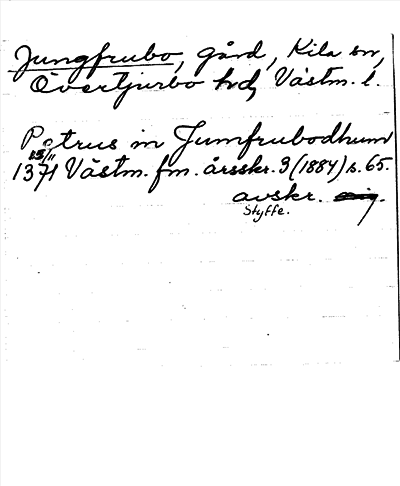 Jungfrubo, gård, Kila sn,
Övertjurbo hd, Västm. l.
Petrus in Jumfrubodhum
15/11
1371 Västm. fm. årsskr. 3 (1884) s. 65.
avskr.
Styffe.